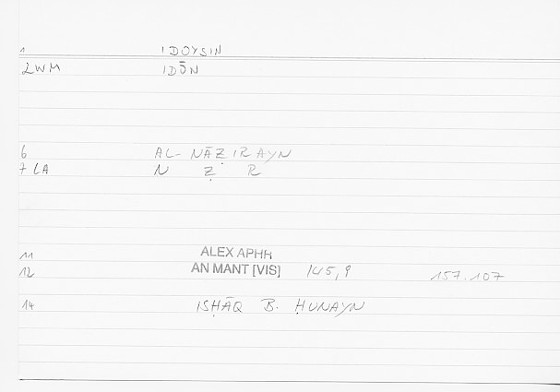 1 IDOYSIN
2WM IDŌN
6 AL-NĀẒIRAYN
7 LA N Ẓ R
11 ALEX APHR
12 AN MANT [VIS] 145,9 157.107
14 ISḤĀQ B. ḤUNAYN